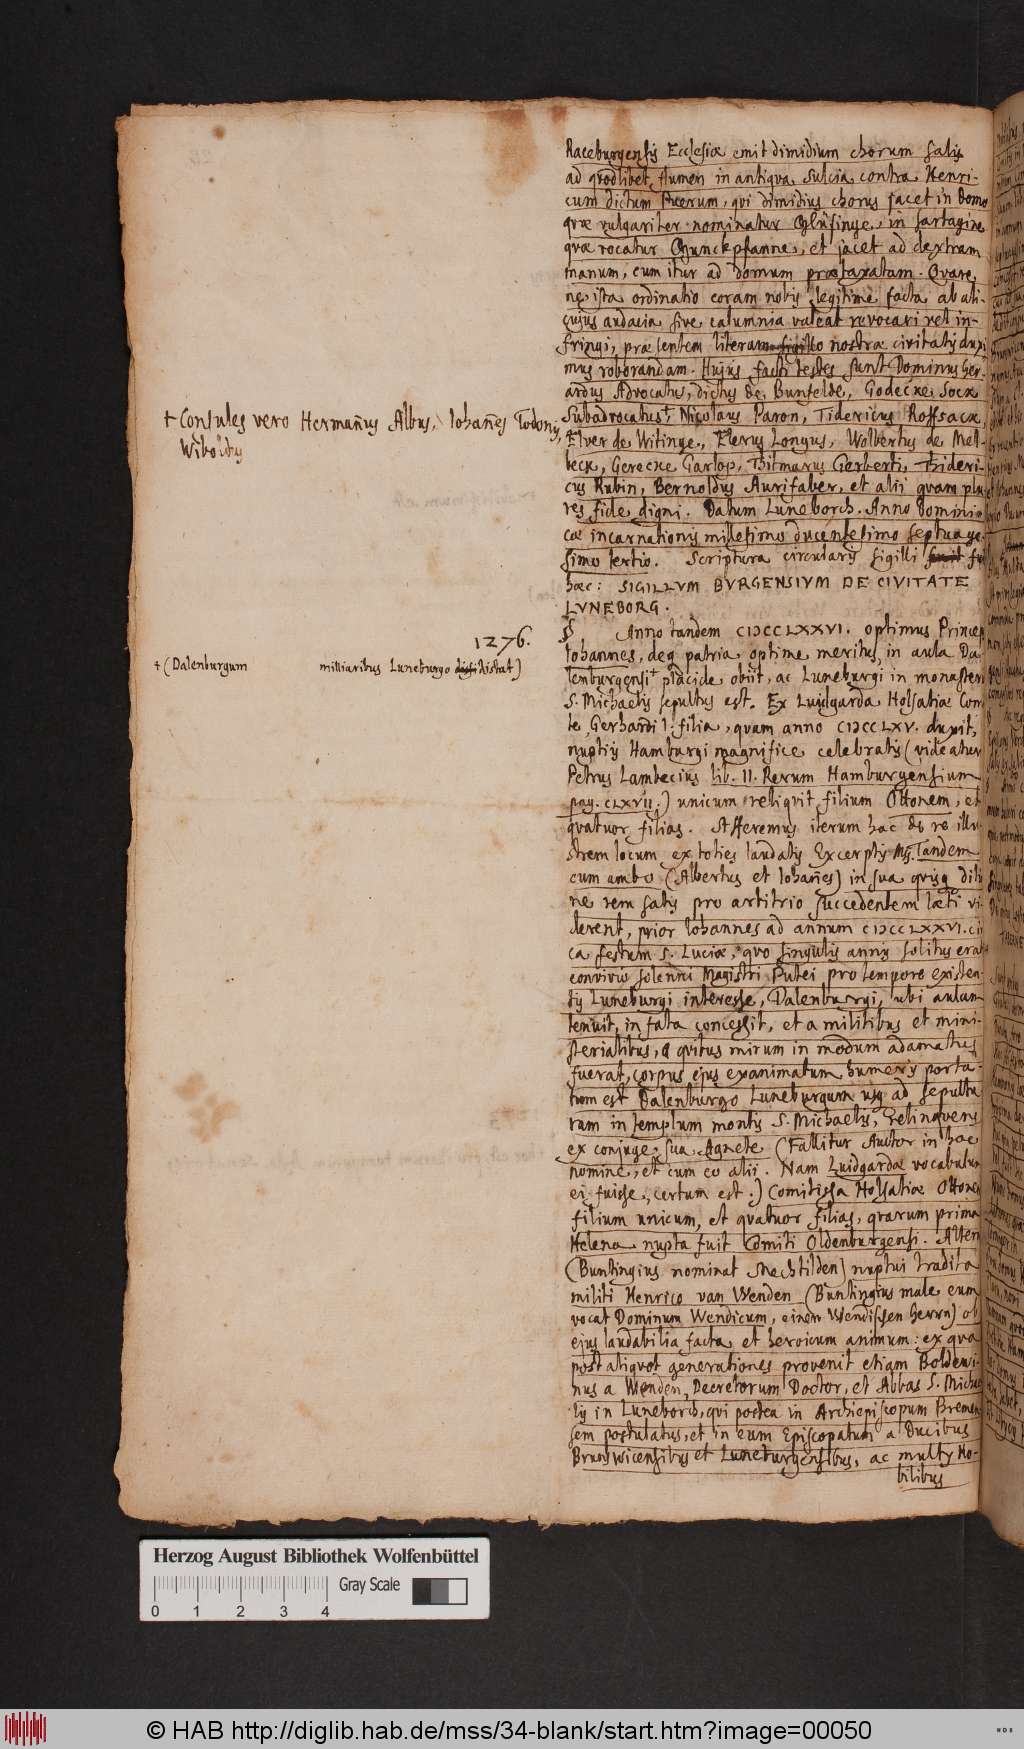 Raceburgensis Ecclesiæ emit dimidium chorum salis
ad quodlibet flumen in antiqua Sulcia contra Henri-
cum dictum Puerum, qui dimidius chorus jacet in Domo
quæ vulgariter nominatur Glüsinge, in sartagine
quæ vocatur Gunckpfanne, et jacet ad dextram
manum, cum itur ad domum prætaxatam. Quare,
ne ista ordinatio coram nobis legitime facta ab ali-
cujus audacia sive calumnia valeat revocari vel in-
fringi, præsentem literam sigillo nostræ civitatis duxi
mus roborandam. Hujus facti testes sunt Dominus Ger-
ardus Advocatus, dictus de Bunfelde, Godecke Sock
Subadvocatus† Nicolaus Paron, Tidericus Roffsack,
† Consules vero Hermañus Albus, Iohañes Todonis,
Wiboldus
Elver de Witinge, Elerus Longus, Wolbertus de Mel-
beck, Gerecke Garlop, Thitmarus Gerberti, Thideri-
cus Rubin, Bernoldus Aurifaber, et alii quam plu
res fide digni. Datum Luneborch. Anno Domini
cæ incarnationis millesimo ducentesimo septuage-
simo tertio. Scriptura circularis sigilli
hæc: SIGILLVM BVRGENSIVM DE CIVITATE
LVNEBORG.
1276.
§ Anno tandem CIƆCCLXXVI. optimus Princeps
Iohannes, deq patria optime meritus, in aula Da
† (Dalenburgum milliaribus Luneburgo distat)
lenburgensi† placide obiit, ac Luneburgi in monasteri
S. Michaelis sepultus est. Ex Luidgarda Holsatiæ Com
te Gerhardi I. filia, quam anno CIƆCCLXV. duxit,
nuptiis Hamburgi magnifice celebratis (videatur
Petrus Lambecius lib. II. Rerum Hamburgensium
pag. CLXVII.) unicum reliquit filium Ottonem, et
quatuor filias. Afferemus iterum hac de re illu
strem locum ex toties laudatis Excerptis Mss. Tandem
cum ambo (Albertus et Iohañes) in sua quisq diti
ne rem satis pro arbitrio succedentem læti vi
derent, prior Iohannes ad annum CIƆCCLXXVI. cir
ca festum S. Luciæ, quo singulis annis solitus erat
convivio solenni Magistri Putei pro tempore existen-
tis Luneburgi interesse, Dalenburgi, ubi aulam
tenuit, in fata concessit, et a militibus et mini-
sterialibus, a quibus mirum in modum adamatus
fuerat, corpus ejus exanimatum humeris porta-
tum est Dalenburgo Luneburgum usq ad sepultu
ram in templum montis S. Michaelis, relinquens
ex conjuge sua Agnete (Fallitur Auctor in hoc
nomine, et cum eo alii. Nam Luidgardæ vocabulum
ei fuisse, certum est.) Comitissa Holsatiæ Ottonem
filium unicum, et quatuor filias, quarum prima
Helena nupta fuit Comiti Oldenburgensi. Altera
(Buntingius nominat Mechtilden) nuptui tradita
militi Henrico van Wenden (Buntingius male eum
vocat Dominum Wendicum, einen Wendissen Herrn) ob
ejus laudabilia facta et heroicum animum: ex qua
post aliquot generationes provenit etiam Boldewi-
nus a Wenden, Decretorum Doctor, et Abbas S. Michae
lis in Luneborch, qui postea in Archiepiscopum Bremen
sem postulatus, et in eum Episcopatum a Ducibus
Brunswicensibus et Luneburgensibus, ac multis No-
bilibus
Herzog August Bibliothek Wolfenbüttel
Gray Scale
0 1 2 3 4
© HAB http://diglib.hab.de/mss/34-blank/start.htm?image=00050